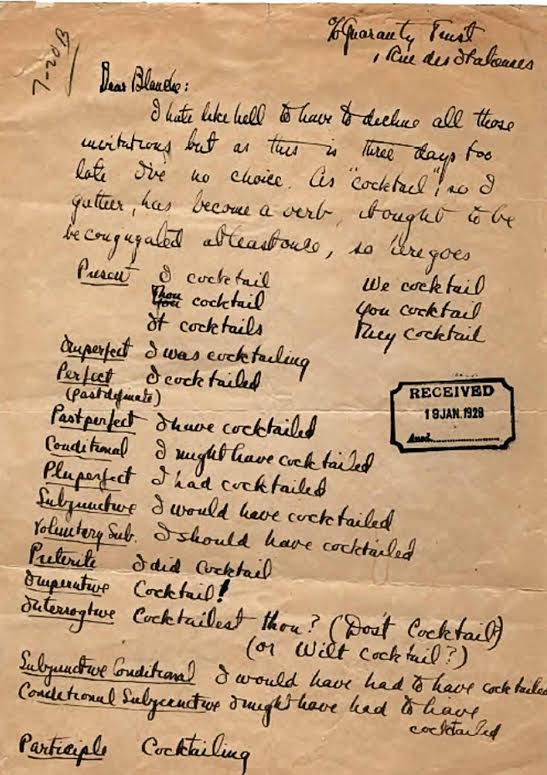 7-20 B
c/o Guaranty Trust
1 Rue des Italiennes
Dear Blanche:
I hate like hell to have to decline all those
invitations but as this is three days too
late I've no choice. As "cocktail", so I
gather, has become a verb, it ought to be
be conjugated at least once, so here goes
Present I cocktail We cocktail
Thou cocktail You cocktail
It cocktails They cocktail
Imperfect I was cocktailing
Perfect I cocktailed
(past definate)
RECEIVED
19 JAN. 1928
Ansd.
Past perfect I have cocktailed
Conditional I might have cocktailed
Pluperfect I had cocktailed
Subjunctive I would have cocktailed
Voluntary Sub. I should have cocktailed
Preterite I did cocktail
Imperative Cocktail!
Interrogtive Cocktailest thou? (Dos't Cocktail?)
(or Wilt cocktail?)
Subjunctive Conditional I would have had to have cocktailed
Conditional Subjunctive I might have had to have
cocktailed
Participle Cocktailing